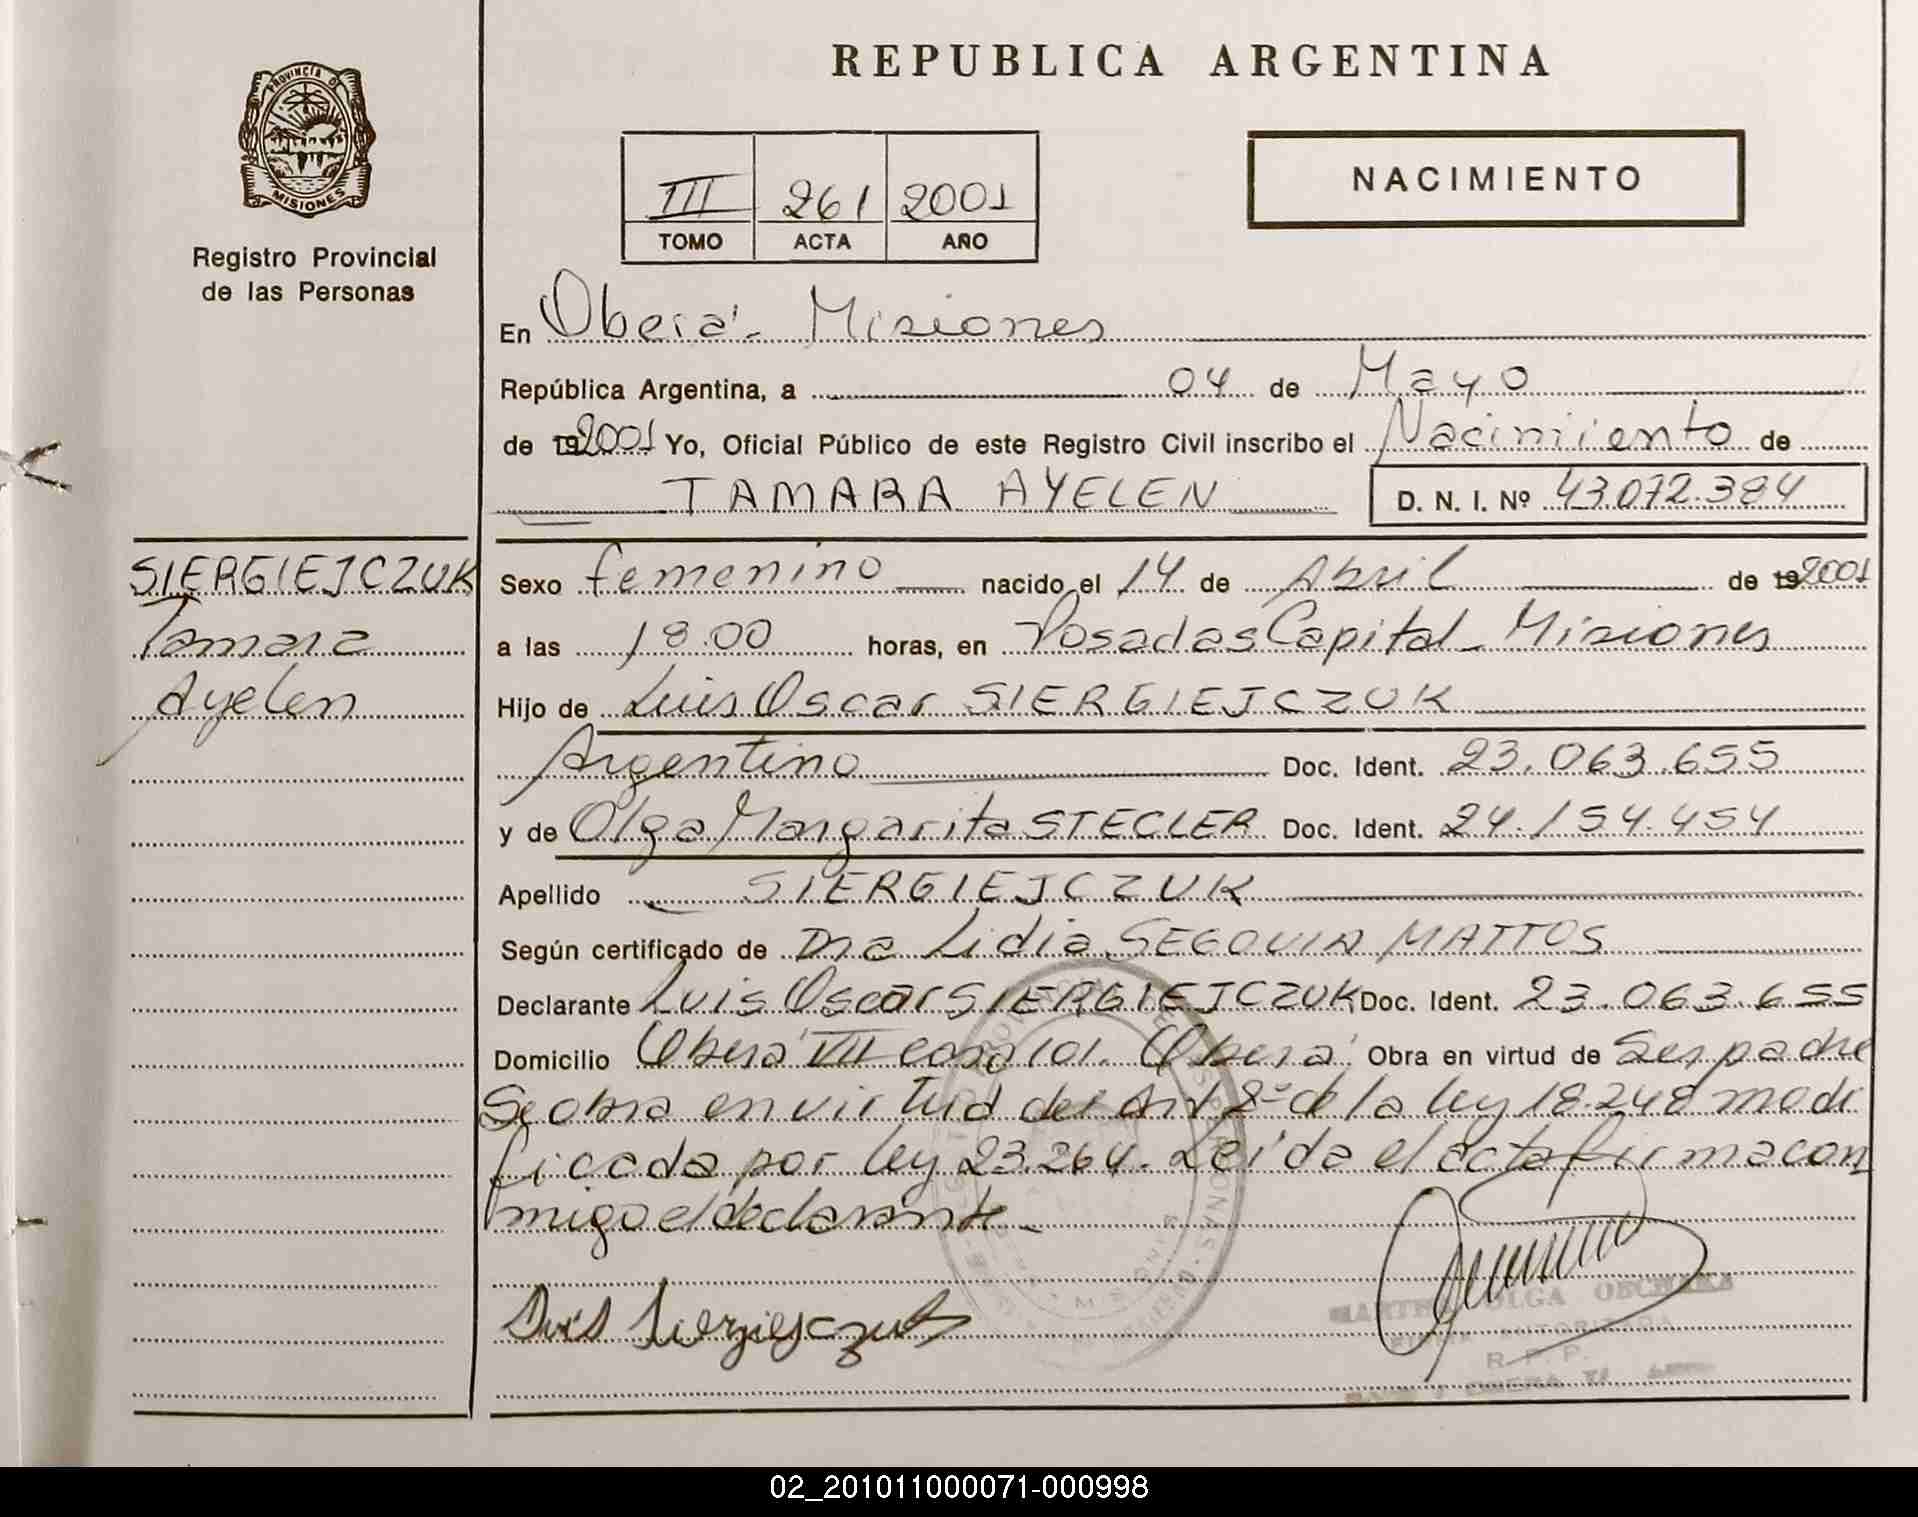 PROVINCIA DE
MISIONES
Registro Provincial
de las Personas
REPUBLICA ARGENTINA
III 261 2001
TOMO ACTA AÑO
NACIMIENTO
En Oberá - Misiones
República Argentina, a 04 de Mayo
de 192001 Yo, Oficial Público de este Registro Civil inscribo el Nacimiento de
TAMARA AYELEN D. N. I. Nº 43.072.384
SIERGIEJCZUK
Tamara
Ayelen
Sexo femenino nacido el 14 de Abril de 192001
a las 18.00 horas, en Posadas Capital - Misiones
Hijo de Luis Oscar SIERGIEJCZUK
Argentino Doc. Ident. 23.063.655
y de Olga Margarita STECLER Doc. Ident. 24.154.454
Apellido SIERGIEJCZUK
Según certificado de Dra Lidia SEGOVIA MATTOS
Declarante Luis Oscar SIERGIEJCZUK Doc. Ident. 23.063.655
Domicilio Oberá VII casa 101. Oberá Obra en virtud de Ser padre
Se obra en virtud del Art 2º de la ley 18.248 modi
ficada por ley 23.264. Leída el acta firma con
migo el declarante -
Luis Siergiejczuk
MARTHA OLGA
FIRMA AUTORIZADA
R. P. P.
02_201011000071-000998